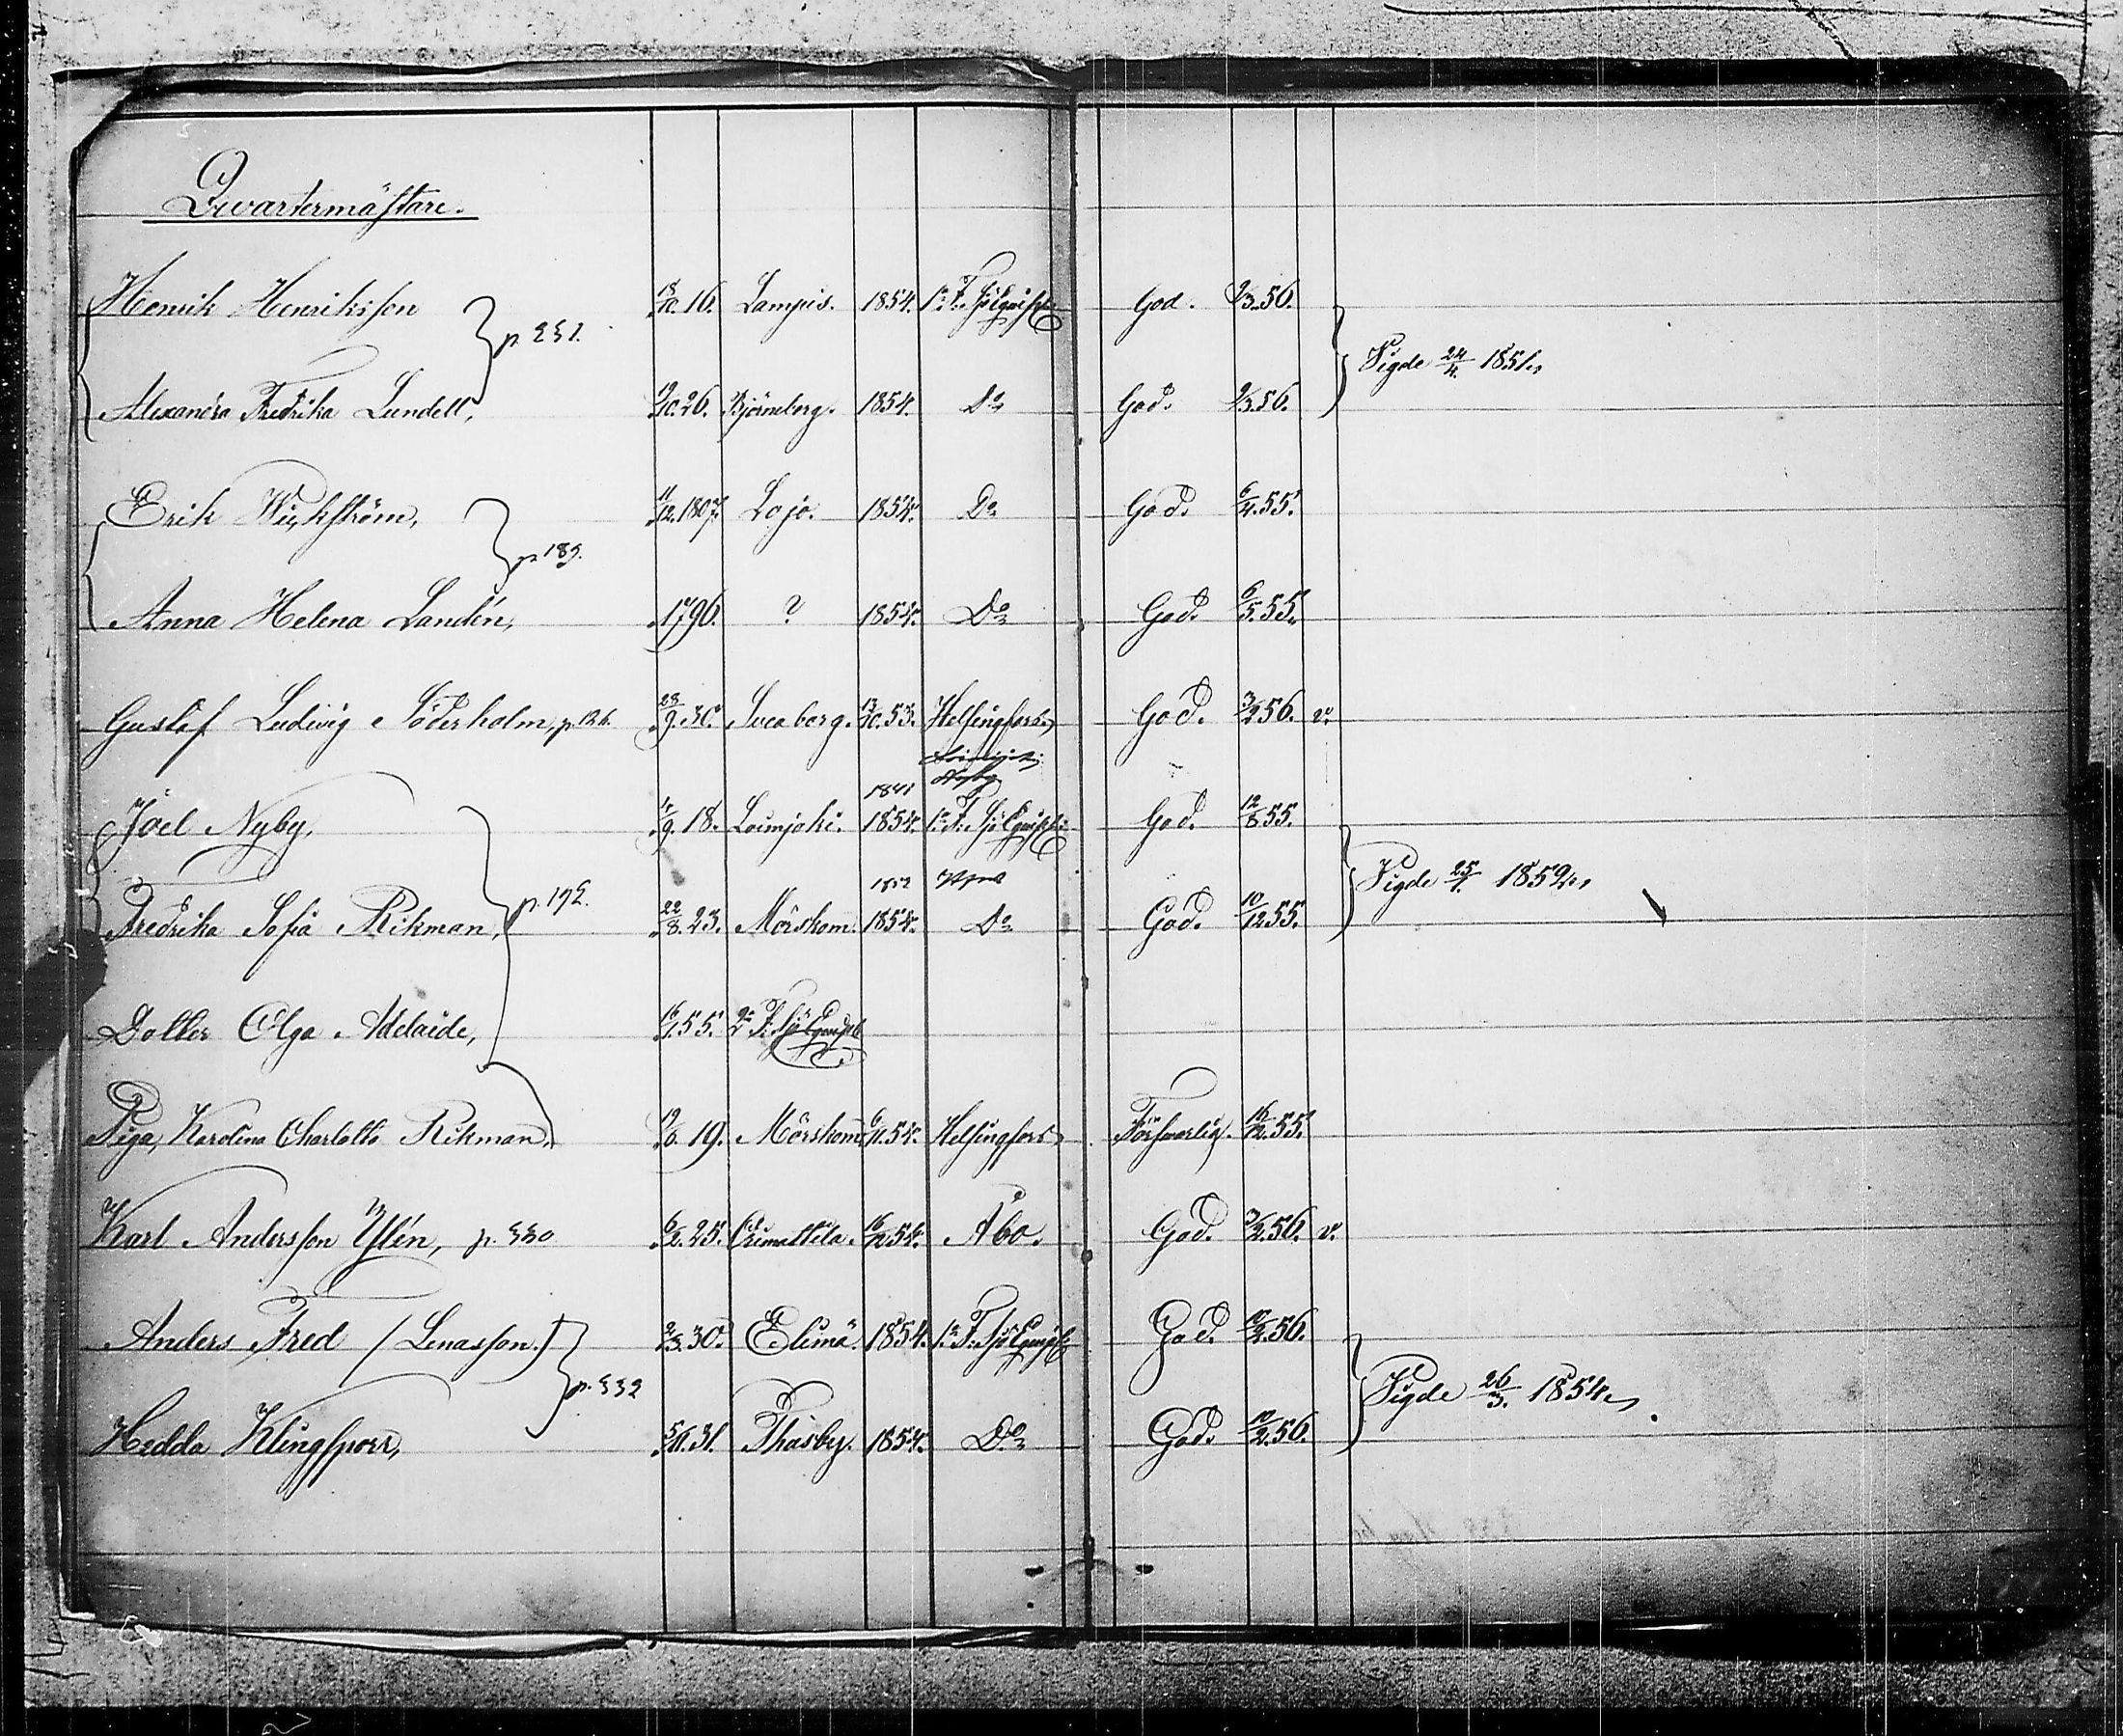 Qvartermästare.
Henrik Henriksson 18/10.16. Lampis. 1854. 1:a F. Sjö Equip. God. 9/3.56.
p 331. Vigde 24/4. 1851.
Alexandra Fredrika Lundell, 9/10.26. Björneborg. 1854. Do God. 9/3.56.
Erik Wickström, 11/12.1807. Lojo. 1854. Do God. 6/4.55.
p 189.
Anna Helena Landén, 1796. ? 1854. Do God. 6/5.55.
Gustaf Ludvig Söderholm, p 126. 28/9.30. Sveaborg. 13/10.53. Helsingfors God. 3/2.56. v.
1841
Joel Nyby, 4/9.18. Loimjoki. 1854. 1:a F. Sjö Equip. God. 12/8.55.
1852
p 192. Vigde 25/1. 1852.
Fredrika Sofia Rikman, 22/8.23. Mörskom. 1854. Do God. 10/12.55.
Dotter Olga Adelaide, 16/1.55. 2a F. Sjö Equip.
Piga, Karolina Charlotta Rikman, 19/6.19. Mörskom 6/11.54. Helsingfors Försvarlig. 16/12.55.
Karl Andersson Ylén, p. 330 6/2.25. Orimattila. 16/12.54. Åbo. God. 3/2.56. v.
Anders Fred (Lenasson.) 2/3.30. Elimä. 1854. 1:a F. Sjö Equip. God. 10/2.56.
p. 332 Vigde 26/3. 1854.
Hedda Klingsporr, 5/11.31. Thusby. 1854. Do God. 10/2.56.